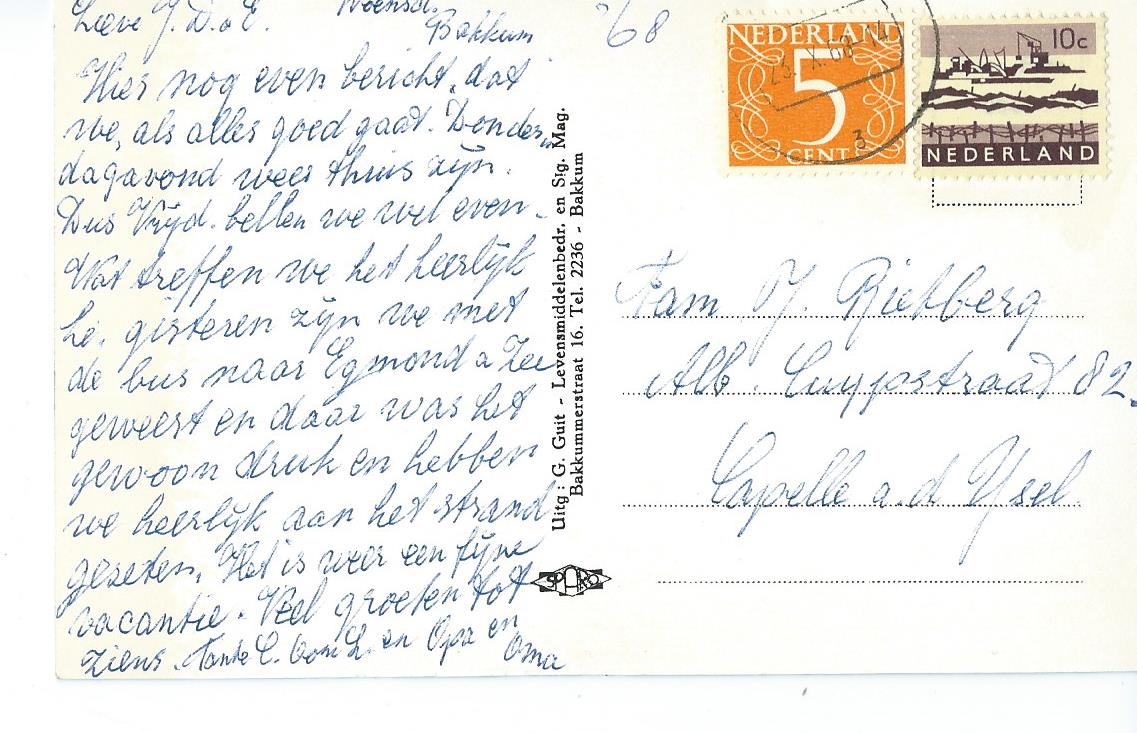 Woensd.
Lieve J. D. a E. Bakkum
Hier nog even bericht, dat
we, als alles goed gaat. Donder,
dagavond weer thuis zijn.
Dus Vrijd. bellen we wel even.
Wat treffen we het heerlijk
hé, gisteren zijn we met
de bus naar Egmond a Zee
geweest en daar was het
gewoon druk en hebben
we heerlijk aan het strand
gezeten. Het is weer een fijne
vacantie. Veel groeten tot
ziens. Tante C. Oom L. en Opa en
Oma
Uitg: G. Guit - Levensmiddelenbedr. en Sig. Mag.
Bakkummerstraat 16. Tel. 2236 - Bakkum
SPARO
'68
NEDERLAND
5
CENT
23. X. 68-14
3
10c
NEDERLAND
Fam J. Rietberg
Alb. Cuypstraat 82.
Capelle a.d Ysel.